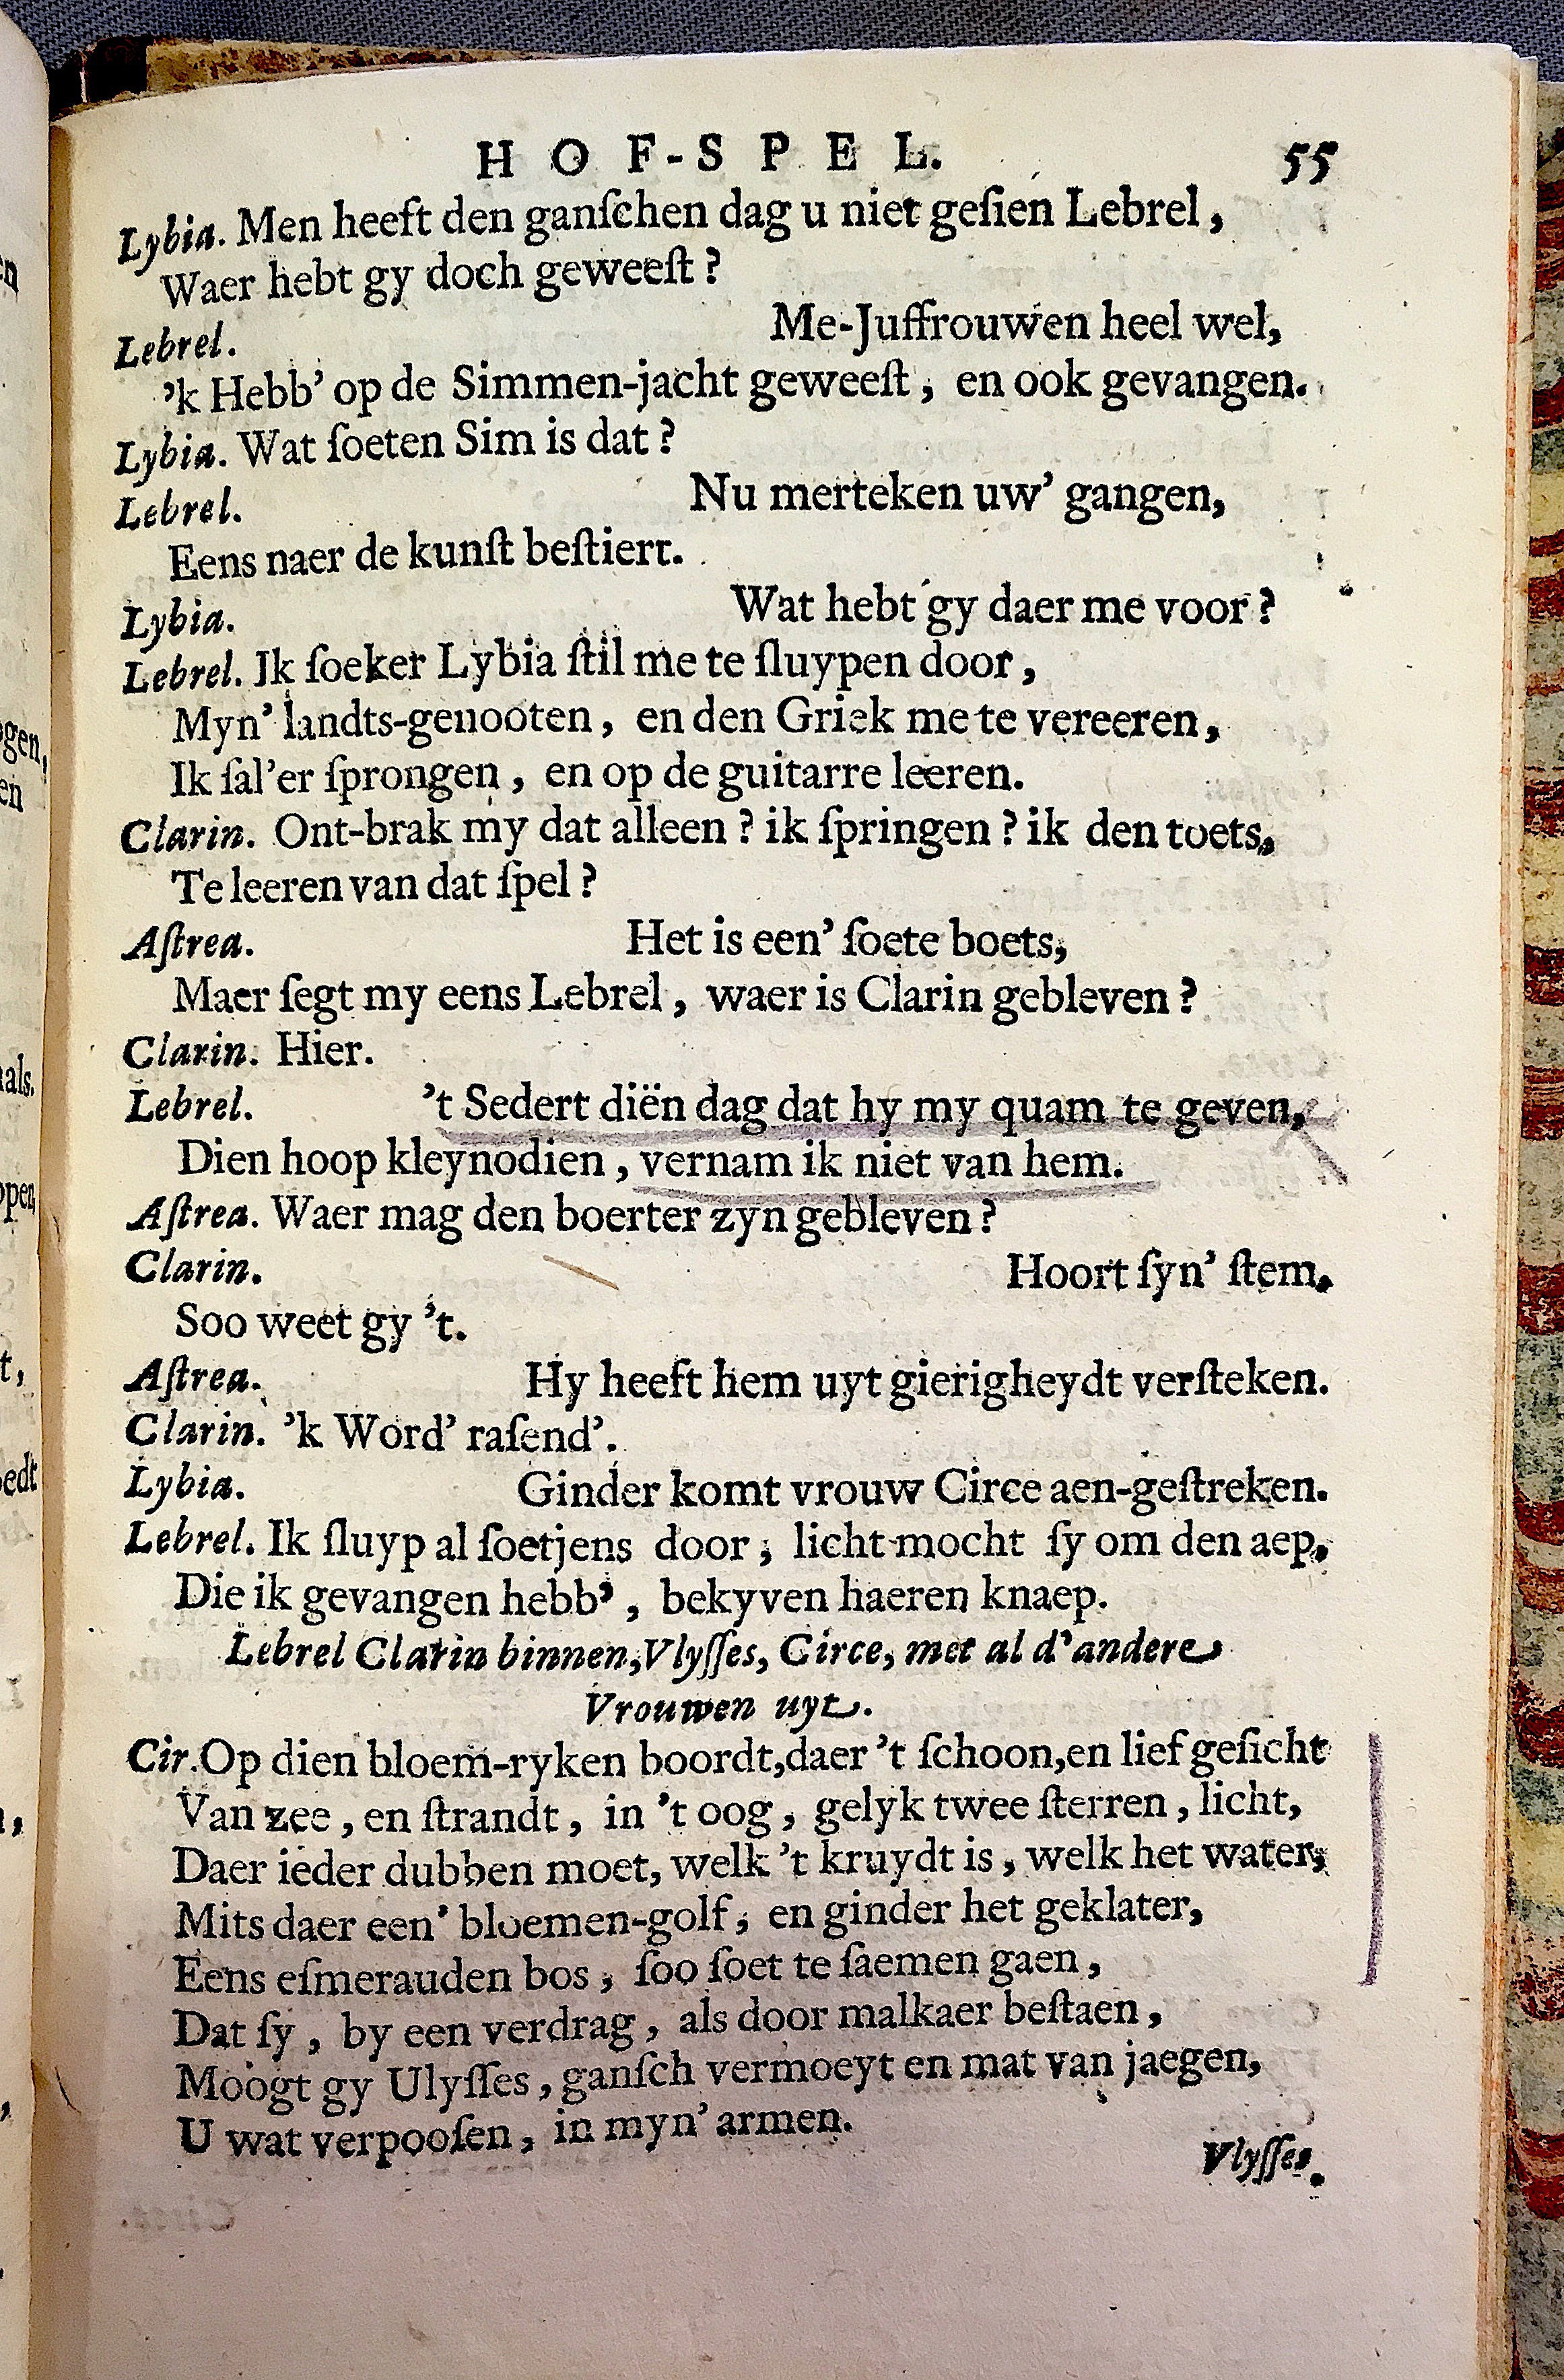 HOF-SPEL. 55
Lybia. Men heeft den ganſchen dag u niet geſien Lebrel,
Waer hebt gy doch geweeſt?
Lebrel. Me-Juffrouwen heel wel,
’k Hebb’ op de Simmen-jacht geweeſt, en ook gevangen.
Lybia. Wat ſoeten Sim is dat?
Lebrel. Nu merteken uw’ gangen,
Eens naer de kunſt beſtiert.
Lybia. Wat hebt gy daer me voor?
Lebrel. Ik ſoeker Lybia ſtil me te ſluypen door,
Myn’ landts-genooten, en den Griek me te vereeren,
Ik ſal’er ſprongen, en op de guitarre leeren.
Clarin. Ont-brak my dat alleen? ik ſpringen? ik den toets,
Te leeren van dat ſpel?
Aſtrea. Het is een’ ſoete boets,
Maer ſegt my eens Lebrel, waer is Clarin gebleven?
Clarin. Hier.
Lebrel. ’t Sedert diën dag dat hy my quam te geven,
Dien hoop kleynodien, vernam ik niet van hem.
Aſtrea. Waer mag den boerter zyn gebleven?
Clarin. Hoort ſyn’ ſtem.
Soo weet gy ’t.
Aſtrea. Hy heeft hem uyt gierigheydt verſteken.
Clarin. ’k Word’ raſend’.
Lybia. Ginder komt vrouw Circe aen-geſtreken.
Lebrel. Ik ſluyp al ſoetjens door, licht mocht ſy om den aep,
Die ik gevangen hebb’, bekyven haeren knaep.
Lebrel Clarin binnen, Vlyſſes, Circe, met al d’andere
Vrouwen uyt.
Cir. Op dien bloem-ryken boordt, daer ’t ſchoon, en lief geſicht
Van zee, en ſtrandt, in ’t oog, gelyk twee ſterren, licht,
Daer ieder dubben moet, welk ’t kruydt is, welk het water,
Mits daer een’ bloemen-golf, en ginder het geklater,
Eens eſmerauden bos, ſoo ſoet te ſaemen gaen,
Dat ſy, by een verdrag, als door malkaer beſtaen,
Moogt gy Ulyſſes, ganſch vermoeyt en mat van jaegen,
U wat verpooſen, in myn’ armen.
Vlyſſes.